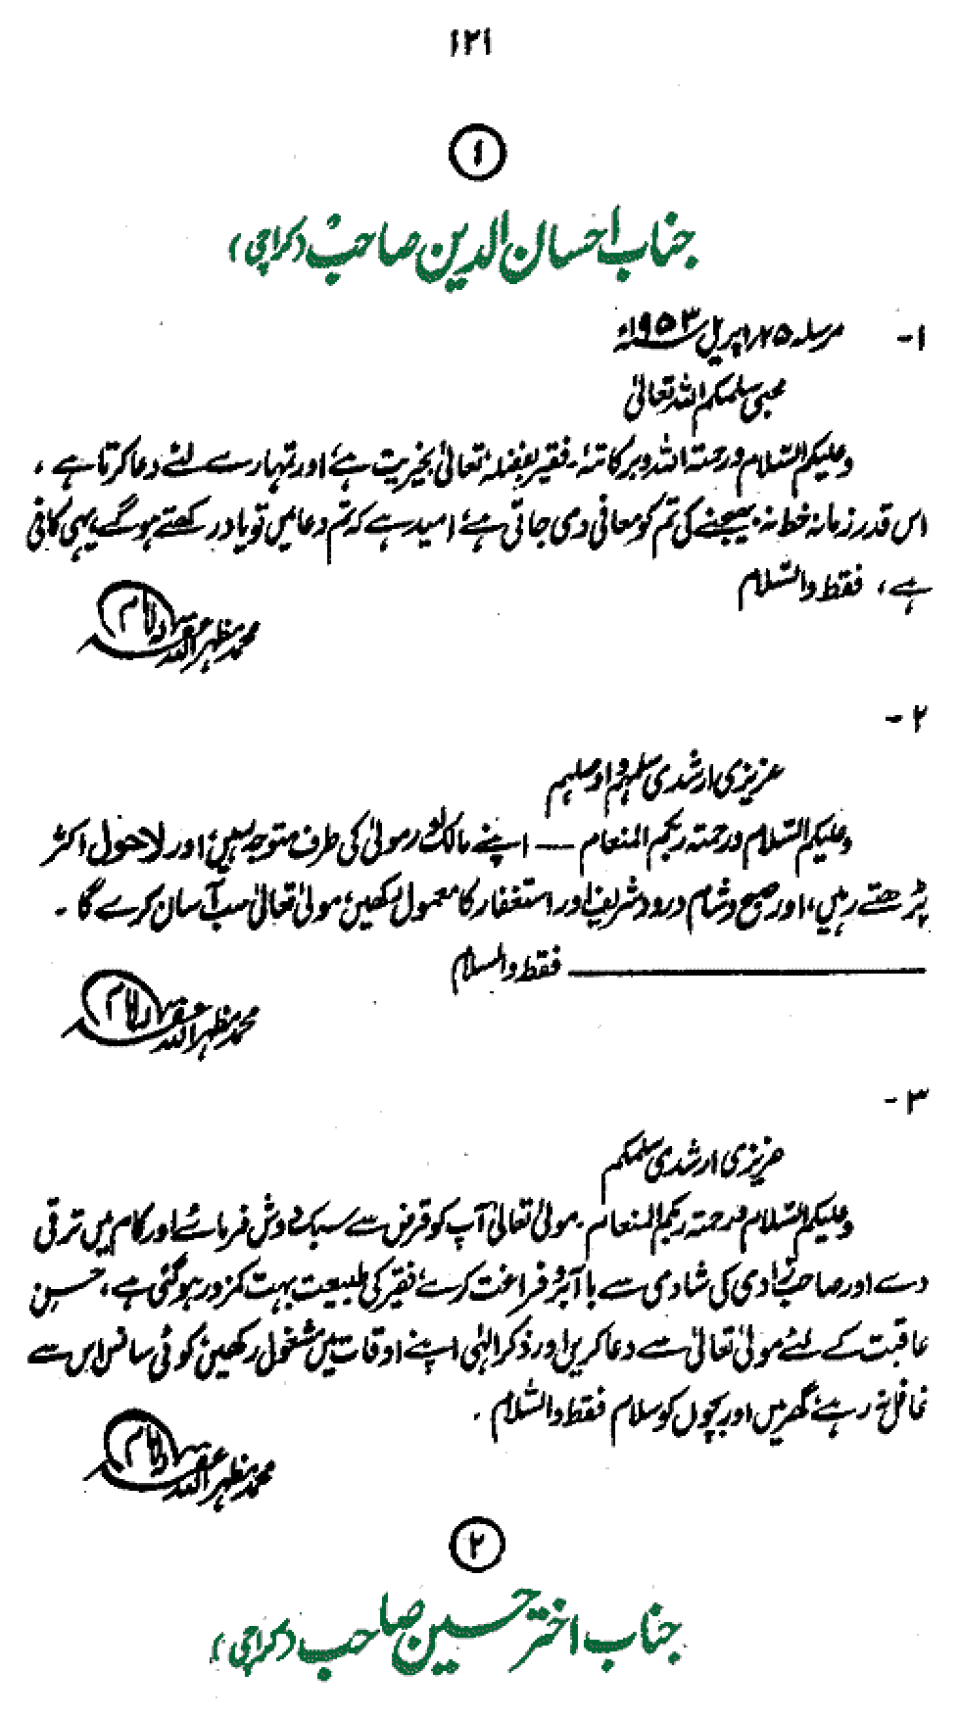 ۱۲۱
۱
جناب احسان الدین صاحب (کراچی)
۱- مرسلہ ۲۵ر اپریل ۱۹۵۳ء
محبی سلمکم اللہ تعالیٰ
وعلیکم السّلام ورحمتہ اللہ وبرکاتہٗ۔ فقیر بفضلہٖ تعالیٰ بخیریت ہے، اور تمہارے لئے دعا کرتا ہے،
اس قدر زمانہ خط نہ بھیجنے کی تم کو معافی دی جاتی ہے، امید ہے کہ تم دعا میں تو یاد رکھتے ہوگے، یہی کافی
ہے، فقط والسّلام
محمد مظہر اللہ
۲-
عزیزی ارشدی سلمہم واوصلہم
وعلیکم السّلام ورحمتہ ربکم المنعام — اپنے مالک ومولیٰ کی طرف متوجہ رہیں، اور لاحول اکثر
پڑھتے رہیں، اور صبح و شام درود شریف اور استغفار کا معمول رکھیں، مولیٰ تعالیٰ سب آسان کرے گا۔
فقط والسلام
محمد مظہر اللہ
۳-
عزیزی ارشدی سلمکم
وعلیکم السّلام ورحمتہ ربکم المنعام۔ مولیٰ تعالیٰ آپ کو قرض سے سبکدوش فرمائے اور کام میں ترقی
دے اور صاحبزادی کی شادی سے باآبرو فراغت کرے، فقیر کی طبیعت بہت کمزور ہوگئی ہے، حسن
عاقبت کے لئے مولیٰ تعالیٰ سے دعا کریں اور ذکر الٰہی اپنے اوقات میں مشغول رکھیں، کوئی سانس اس سے
غافل نہ رہے، گھر میں اور بچوں کو سلام فقط والسّلام۔
محمد مظہر اللہ
۲
جناب اختر حسین صاحب (کراچی)